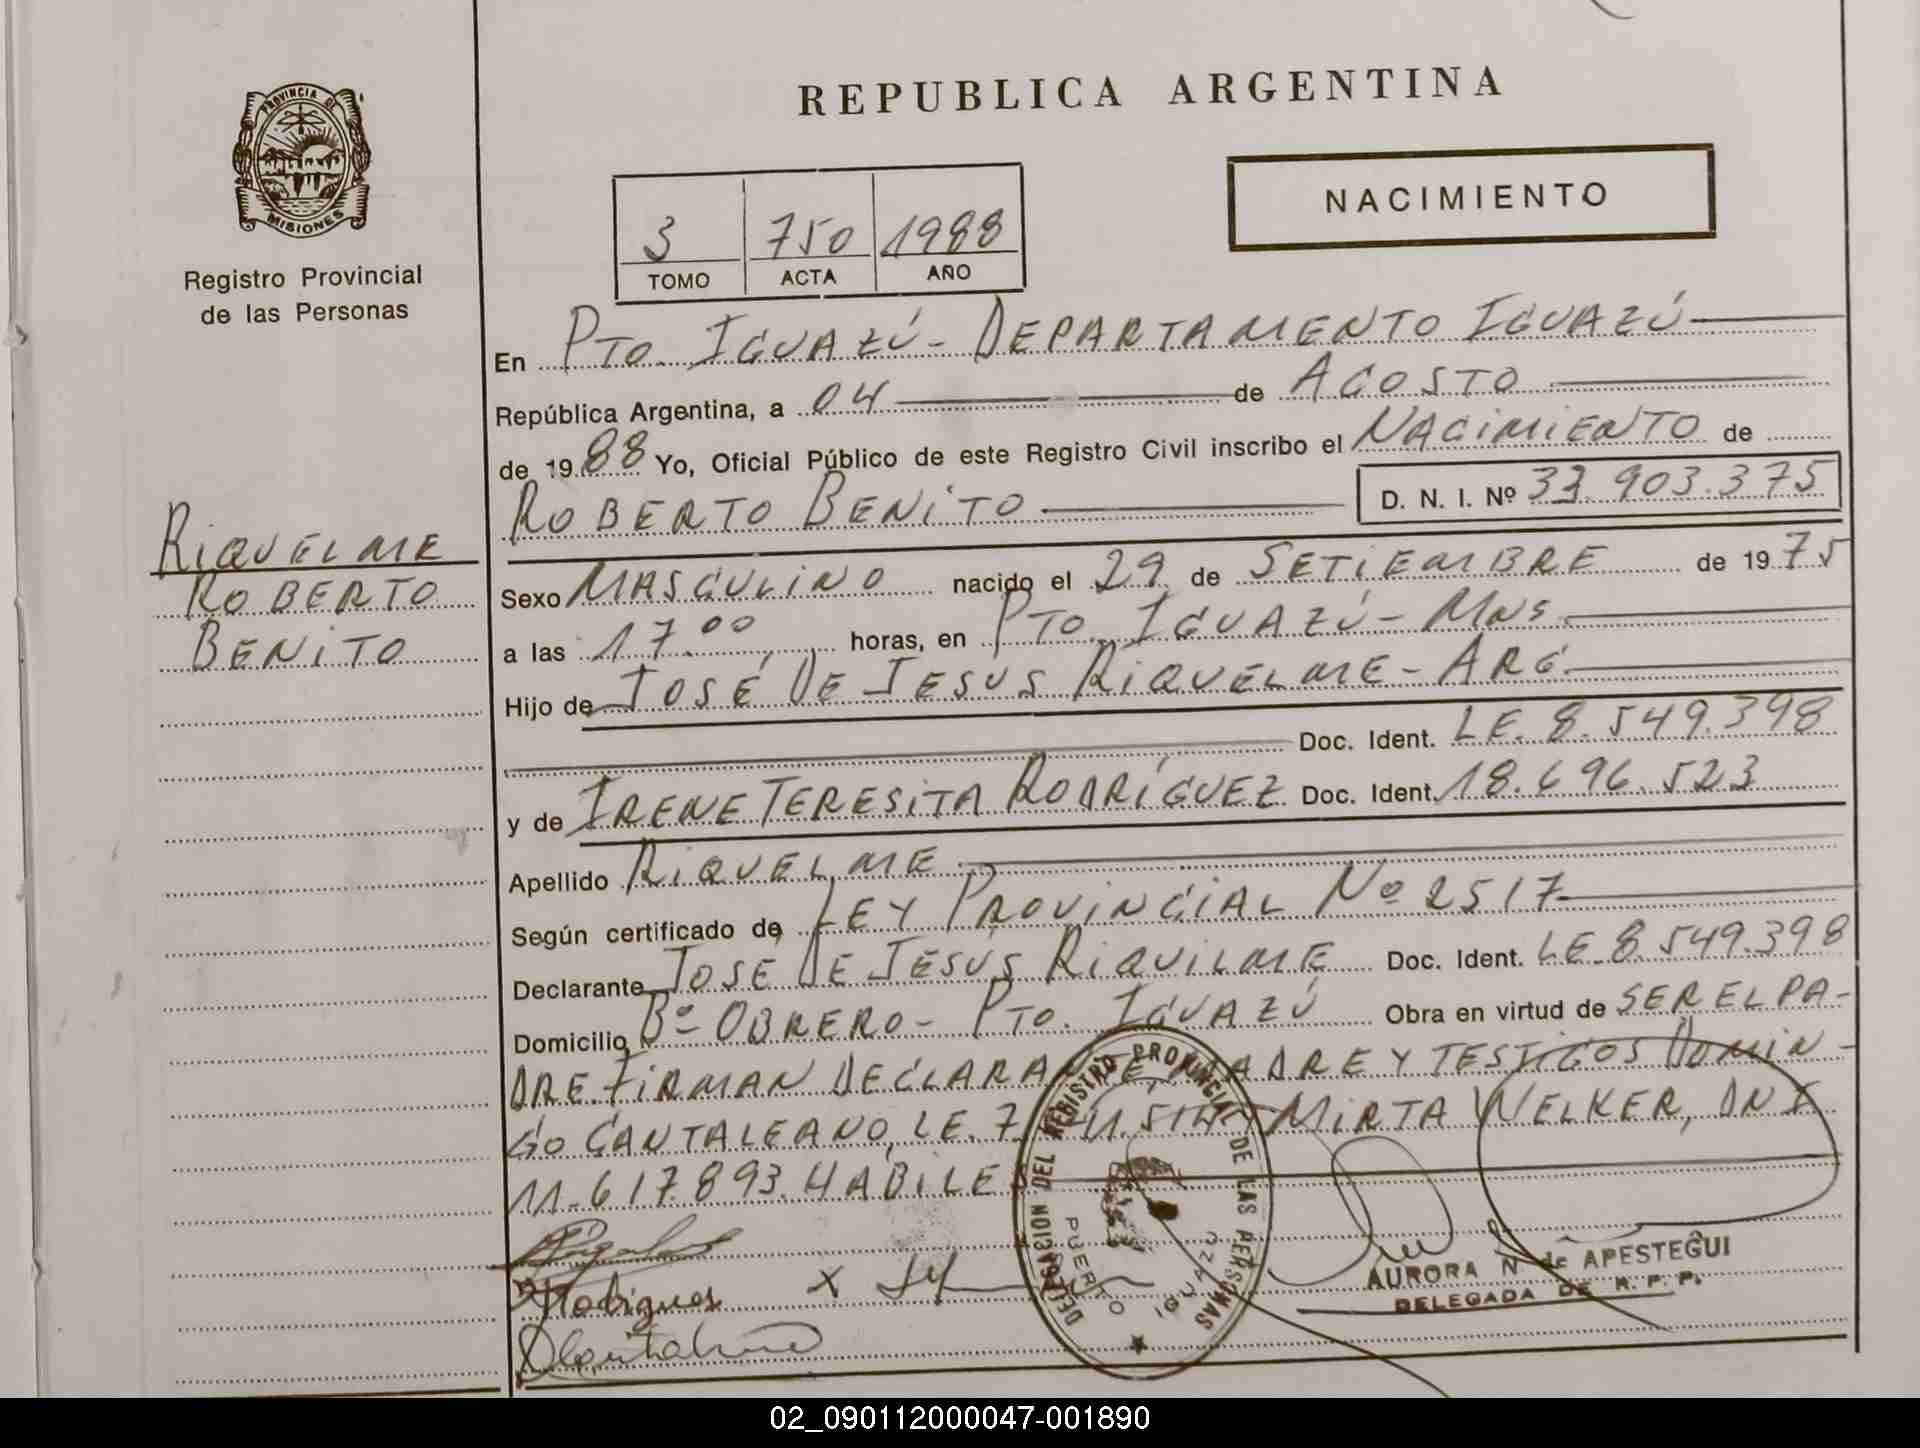 PROVINCIA DE
MISIONES
Registro Provincial
de las Personas
REPUBLICA ARGENTINA
NACIMIENTO
3 750 1988
TOMO ACTA AÑO
En PTO. IGUAZÚ - DEPARTAMENTO IGUAZÚ
República Argentina, a 04 de AGOSTO
de 1988 Yo, Oficial Público de este Registro Civil inscribo el NACIMIENTO de
ROBERTO BENITO D. N. I. Nº 33.903.375
RIQUELME
ROBERTO
BENITO
Sexo MASCULINO nacido el 29 de SETIEMBRE de 1975
a las 17.00 horas, en PTO. IGUAZÚ - MNS
Hijo de JOSÉ DE JESUS RIQUELME - ARG.
Doc. Ident. LE. 8.549.398
y de IRENE TERESITA RODRÍGUEZ Doc. Ident. 18.696.523
Apellido RIQUELME
Según certificado de LEY PROVINCIAL Nº 2517
Declarante JOSÉ DE JESÚS RIQUILME Doc. Ident. LE 8.549.398
Domicilio Bº OBRERO - PTO. IGUAZÚ Obra en virtud de SER EL PA-
DRE. FIRMAN DECLARANTE, MADRE Y TESTIGOS DOMIN-
GO CANTALEANO, LE. 7. MIRTA WELKER, DNI
11.617.893. HABILES
DELEGACION DEL REGISTRO PROVINCIAL DE LAS PERSONAS
PUERTO IGUAZU
AURORA N de APESTEGUI
DELEGADA DE R. P. P.
02_090112000047-001890